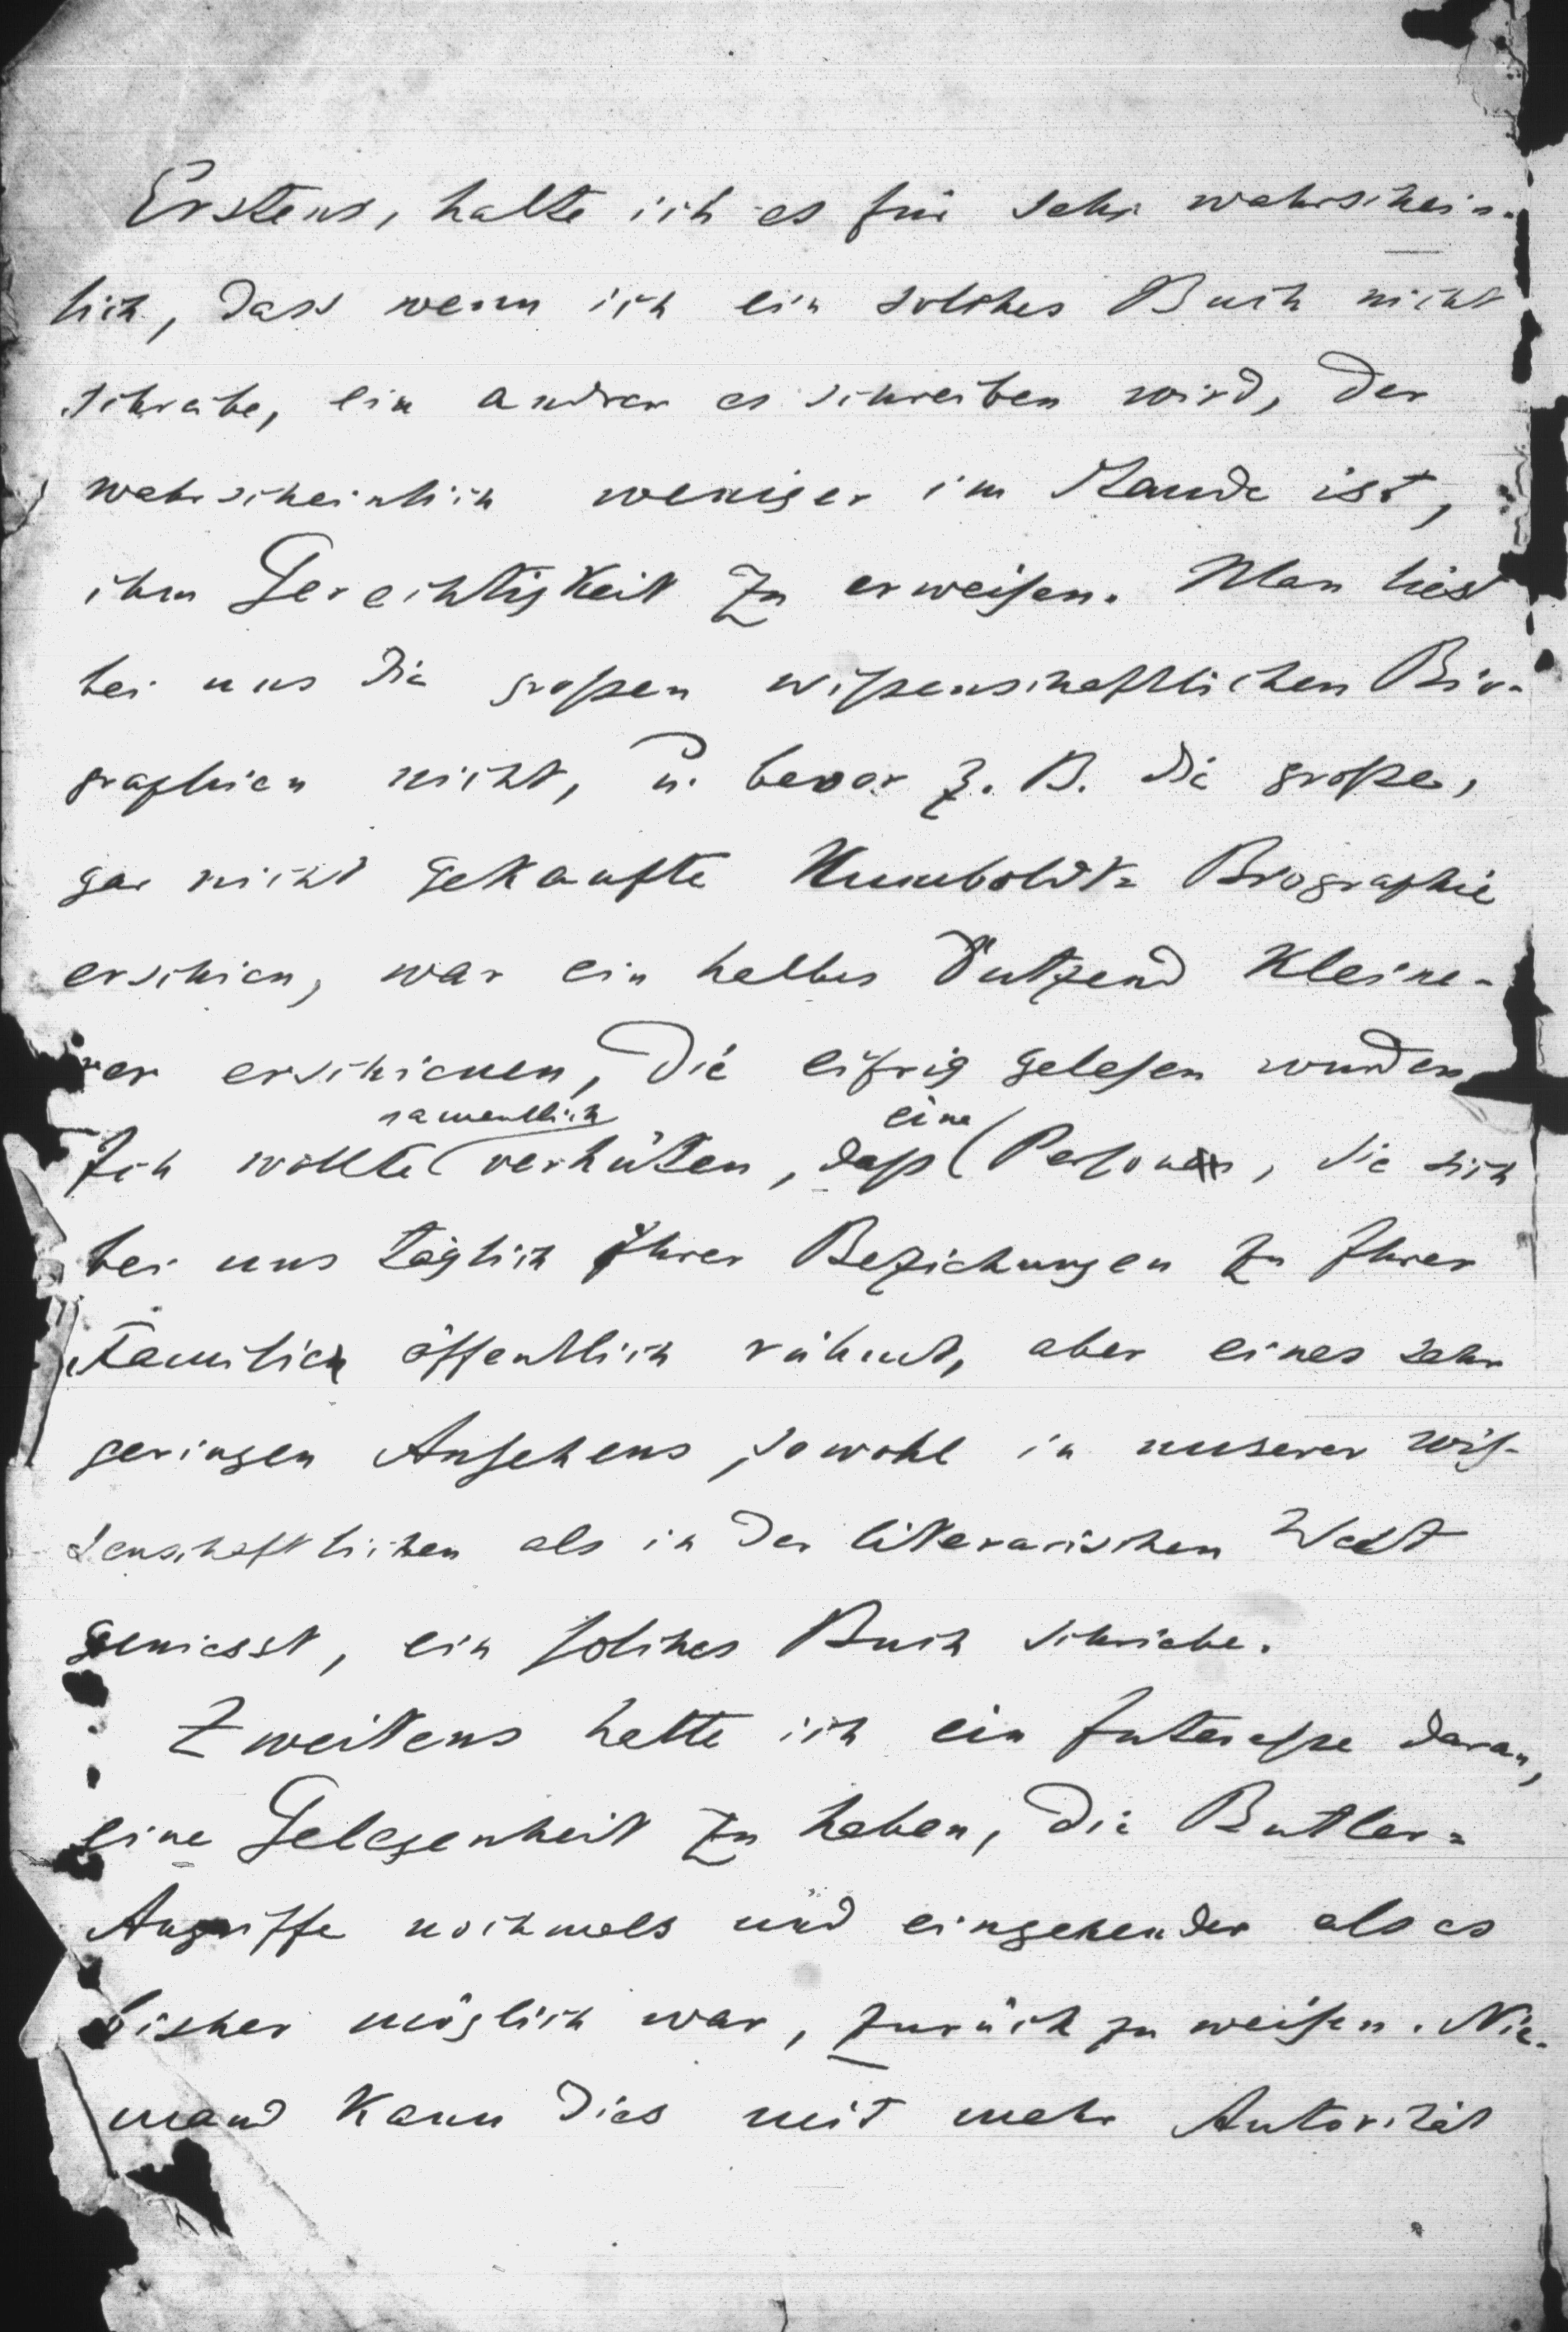 Erstens, halte ich es für sehr wahrschein-
lich, dass wenn ich ein solches Buch nicht
schreibe, ein andrer es schreiben wird, der
wahrscheinlich weniger im Stande ist,
ihm Gerechtigkeit zu erweisen. Man liest
bei uns die großen wißenschaftlichen Bio-
graphien nicht, u. bevor z. B. die große,
gar nicht gekaufte Humboldt= Biographie
erschien, war ein halbes Dutzend kleine-
rer erschienen, die eifrig gelesen wurden
namentlich eine
Ich wollte verhüten, daß Person, die sich
bei uns täglich Ihrer Beziehungen zu Ihrer
Familie öffentlich rühmt, aber eines sehr
geringen Ansehens sowohl in unserer wis-
senschaftlichen als in der literarischen Welt
geniesst, ein solches Buch schriebe.
Zweitens hatte ich ein Intereße daran,
eine Gelegenheit zu haben, die Butler=
Angriffe nochmals und eingehender als es
bisher möglich war, zurück zu weisen. Nie-
mand kann dies mit mehr Autorität